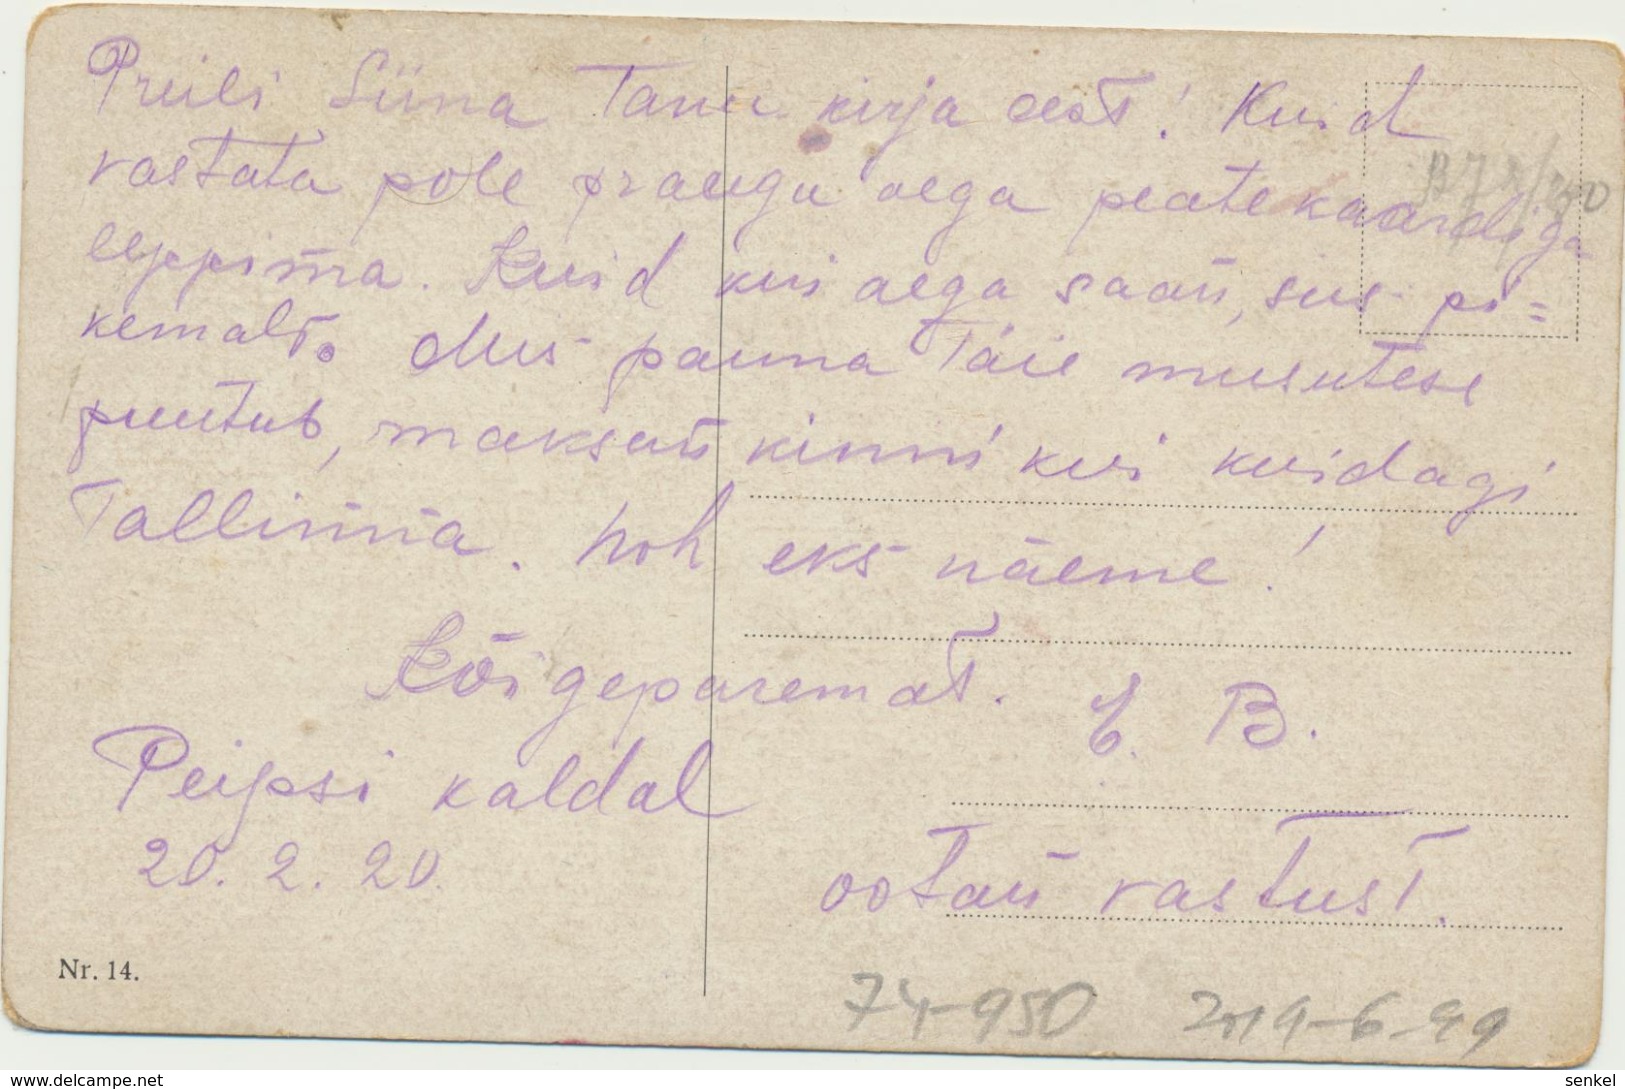 Preili Siina Tänu kirja eest! Kuid
vastata pole praegu aega peate kaardiga
leppima. Kuid kui aega saan, siis pi=
kemalt. Mis pauna täie musutese
puutub, maksan kinni kui kuidagi
Tallinna. Noh eks näeme!
Kõigeparemat. E. B.
Peipsi kaldal
20. 2. 20.
ootan vastust.
Nr. 14.
74-950 2019-6-99
delcampe.net
senkel